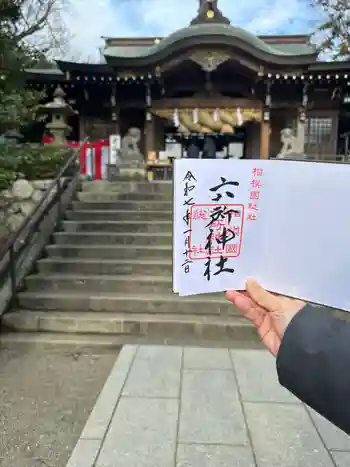 相模國総社
六所神社
令和七年一月十二日